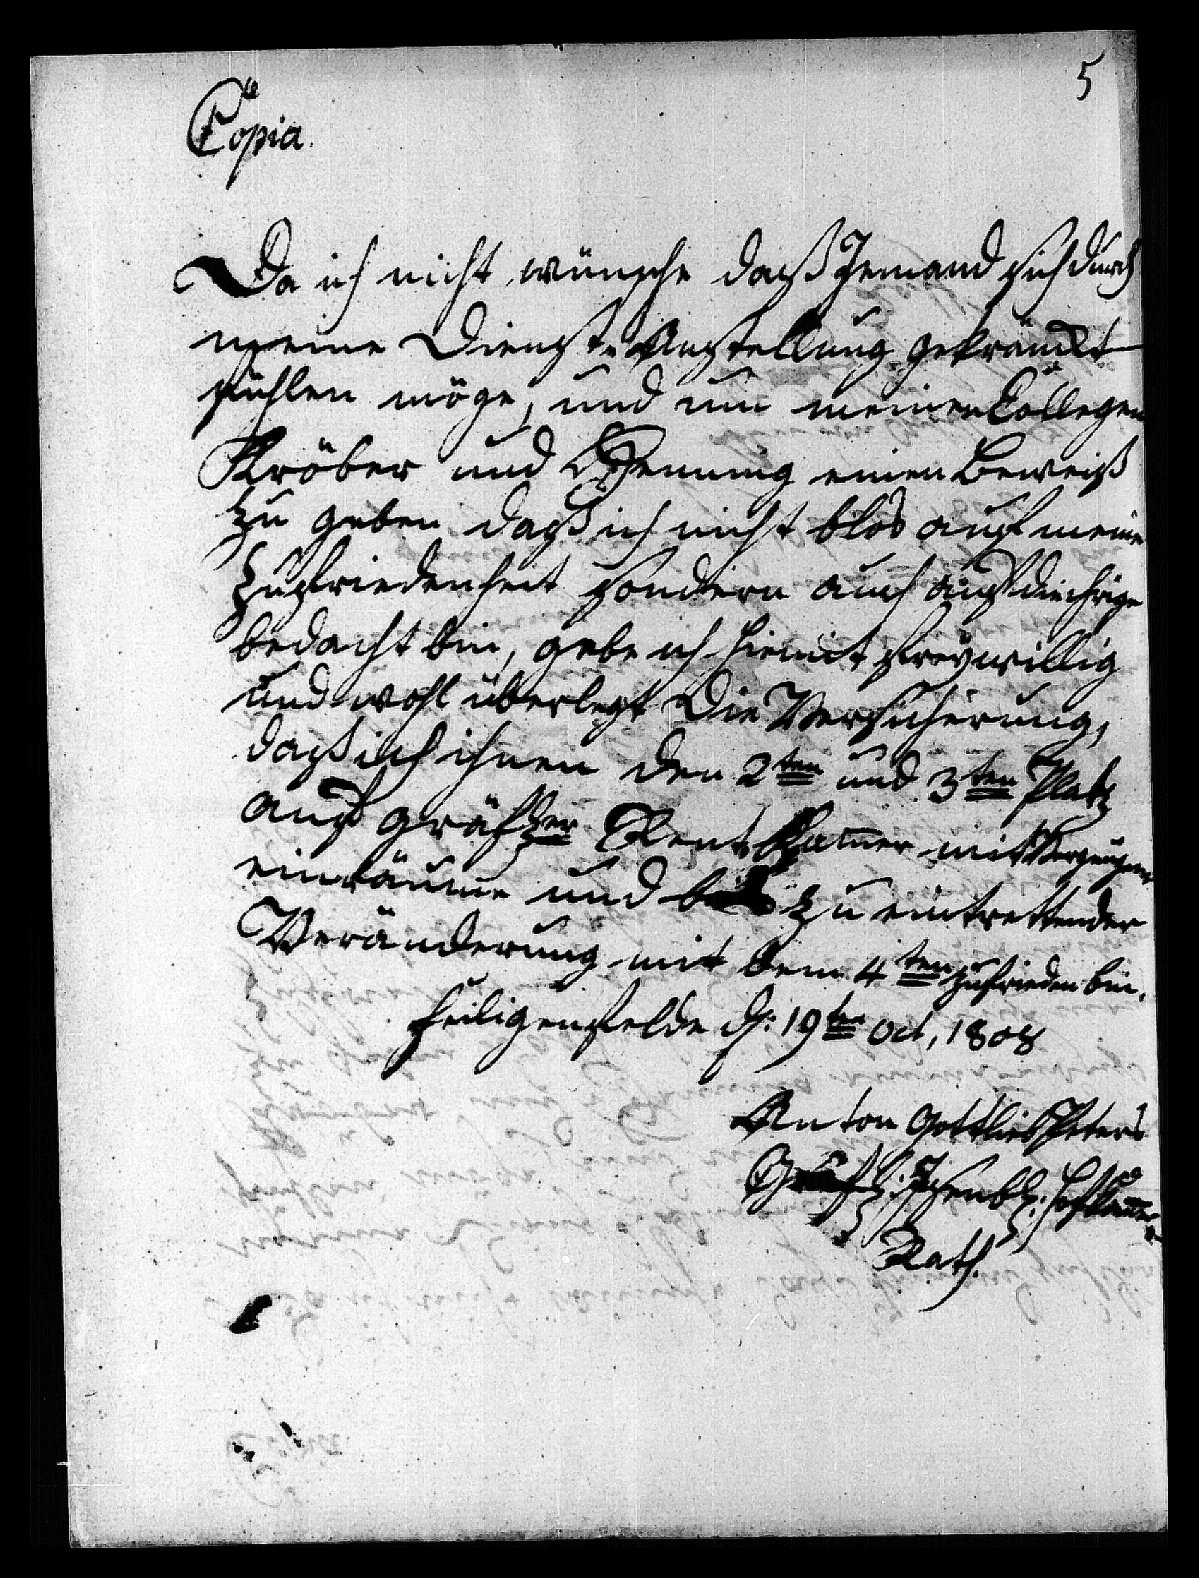 5
Copia.
Da ich nicht wünsche daß Jemand sich durch
meine Dienst-Anstellung gekränckt
fühlen möge, und um meinen Collegen
Kröber und Henning einen Beweiß
zu geben daß ich nicht blos auf meine
Zufriedenheit sondern auch auf die ihrige
bedacht bin, gebe ich hiemit freywillig
und wohl überlegt die Versicherung,
daß ich ihnen den 2ten und 3ten Platz
auf gräflher Rent Kamer mit Vergnügen
einräume und bis zu eintrettender
Veränderung mit dem 4ten zufrieden bin.
Heiligenfelde d: 19ten Oct, 1808
Anton Gottlieb Peters
Gräfl: Isenb: Hofkamer
Rath.